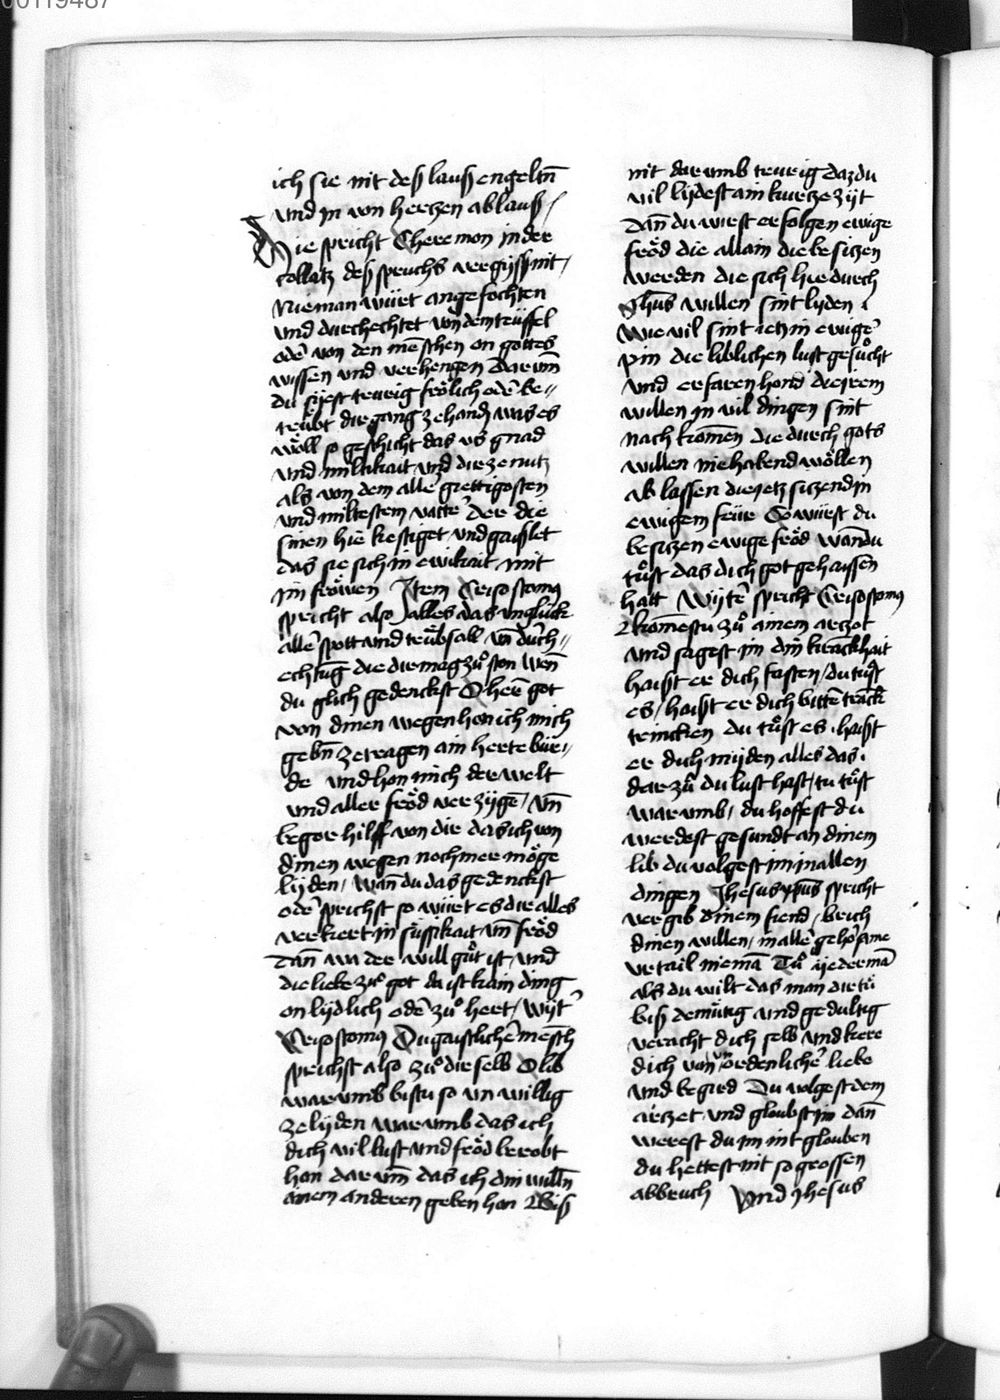 00119487
ich sie nit deß lauß engeltn̄
vnd jn von hertzen ablauß /
Die spricht Cheremon in der
collatz deß spruchs vergijß nit /
Nieman würt angefochten
vnd durchechtet von dem teüffel
odē von den mēschen on gottes
wissen vnd verhengen Darum̄
du sijest trurig frölich odē be〃
trübt dir gang zehand was es
wöll so geschicht das vs gnad
vnd miltikait vnd dir ze nutz
als von dem alle grettigosten
vnd miltestem vatte der die
sinen hie kestiget vnd gaislet
das sie sich in ewikait mit
jm fröwen Jtem Crisostomus
spricht also alles das vnglück
alle spott vnd trübsall vn̄ durch〃
echtuḡ die dir mag zůston wen̄
du glich gedenckst O here got
von dinen wegen hon ich mich
gebn̄ ze tragen ain herte bür〃
de vnd hon mich der welt
vnd aller fröd verzijgē / vn̄
beger hilff von dir das ich von
dinen wegen noch mer möge
lijden / wan̄ du das gedenckst
odē sprichst so würt es dir alles
verkert in süssikait vn̄ fröd
Dan̄ wa der will gůt ist vnd
die liebe zů got da ist kain ding
onlijdlich odē zů hert / wijt
Crisostomus Du gaistliche mēsch
sprichst also zů dir selb O lib
warumb bistu so vnwillig
ze lijden warumb das ich
dich vil lust vnd fröd berobt
han darum̄ das ich din willn̄
ainem anderen geben han Biß
nit darumb trurig daz du
vil lijdest ain kurtze zijt
Dan̄ du wirst erfolgen ewige
fröd die allain die besitzen
werden die sich hie durch
Jhūs willen sint lijden
wie vil sint ietz in ewigē
pin die liblichen lust gesůcht
vnd erfaren hond die irem
willen in vil dingen sint
nach komen die durch gots
willen nie habend wöllen
ab lassen die ietz sitzend in
ewigem feür So würst du
besitzen ewige fröd wan̄ du
tůst das dich got gehaissen
hatt Wijte spricht Crisostomus
komestu zů ainem artzot
vnd sagest im din kranckhait
haist er dich fasten / du tůst
es / haist er dich bitte tranck
trincken du tůst es haist
er dich mijden alles das
dar zů du lust hast / tu tůst
warumb / du hoffest du
werdest gesundt an dinem
lib du volgest im in allen
dingen Jhesus xp̄us spricht
vergib dinem fiend / brich
dinen willen / in alle gehorsame
vrtail niemā Tů ijedermā
als du wilt das man dir tů
biß demütig vnd gedultig
veracht dich selb vnd kere
dich von vnordenliche liebe
vnd begird Du volgest dem
artzet vnd gloubst im dan̄
werest du im nit glouben
du hettest nit so grossen
abbruch Vnd Jhesus